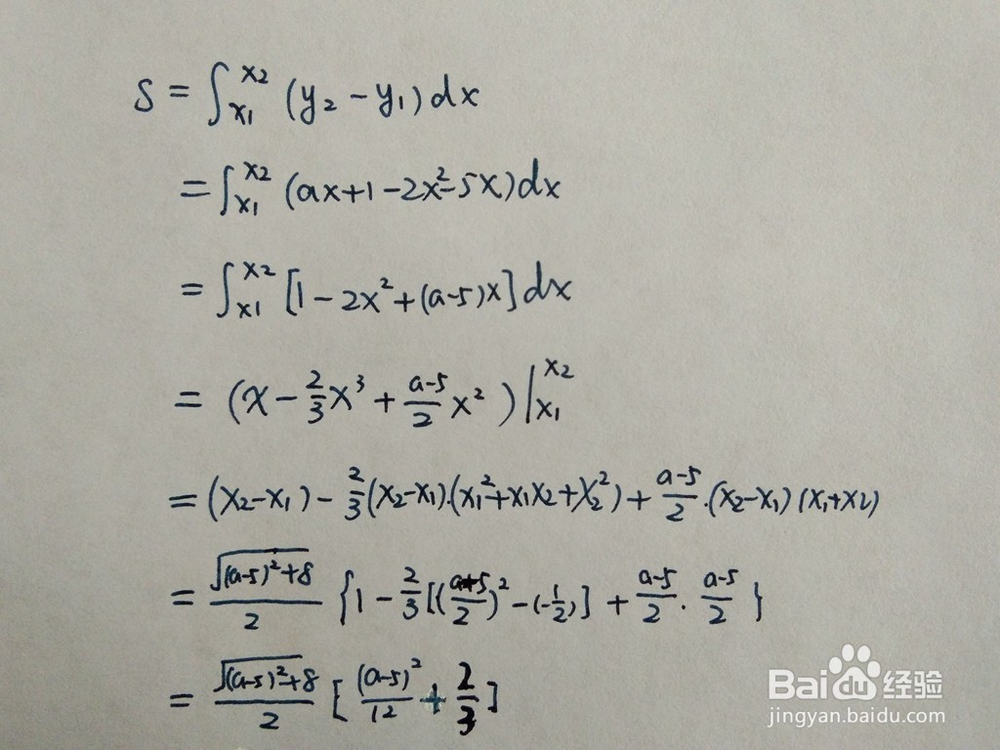 S = ∫_{x1}^{x2} (y₂ - y₁) dx
= ∫_{x1}^{x2} (ax+1-2x²-5x) dx
= ∫_{x1}^{x2} [1-2x²+(a-5)x] dx
= (x - 2/3 x³ + (a-5)/2 x²) |_{x1}^{x2}
= (x₂-x₁) - 2/3 (x₂-x₁)·(x₁²+x₁x₂+x₂²) + (a-5)/2 ·(x₂-x₁)(x₁+x₂)
= √((a-5)²+8)/2 {1 - 2/3 [((a-5)/2)² - (-1/2)] + (a-5)/2 · (a-5)/2}
= √((a-5)²+8)/2 [(a-5)²/12 + 2/3]
Baidu经验
jingyan.baidu.com